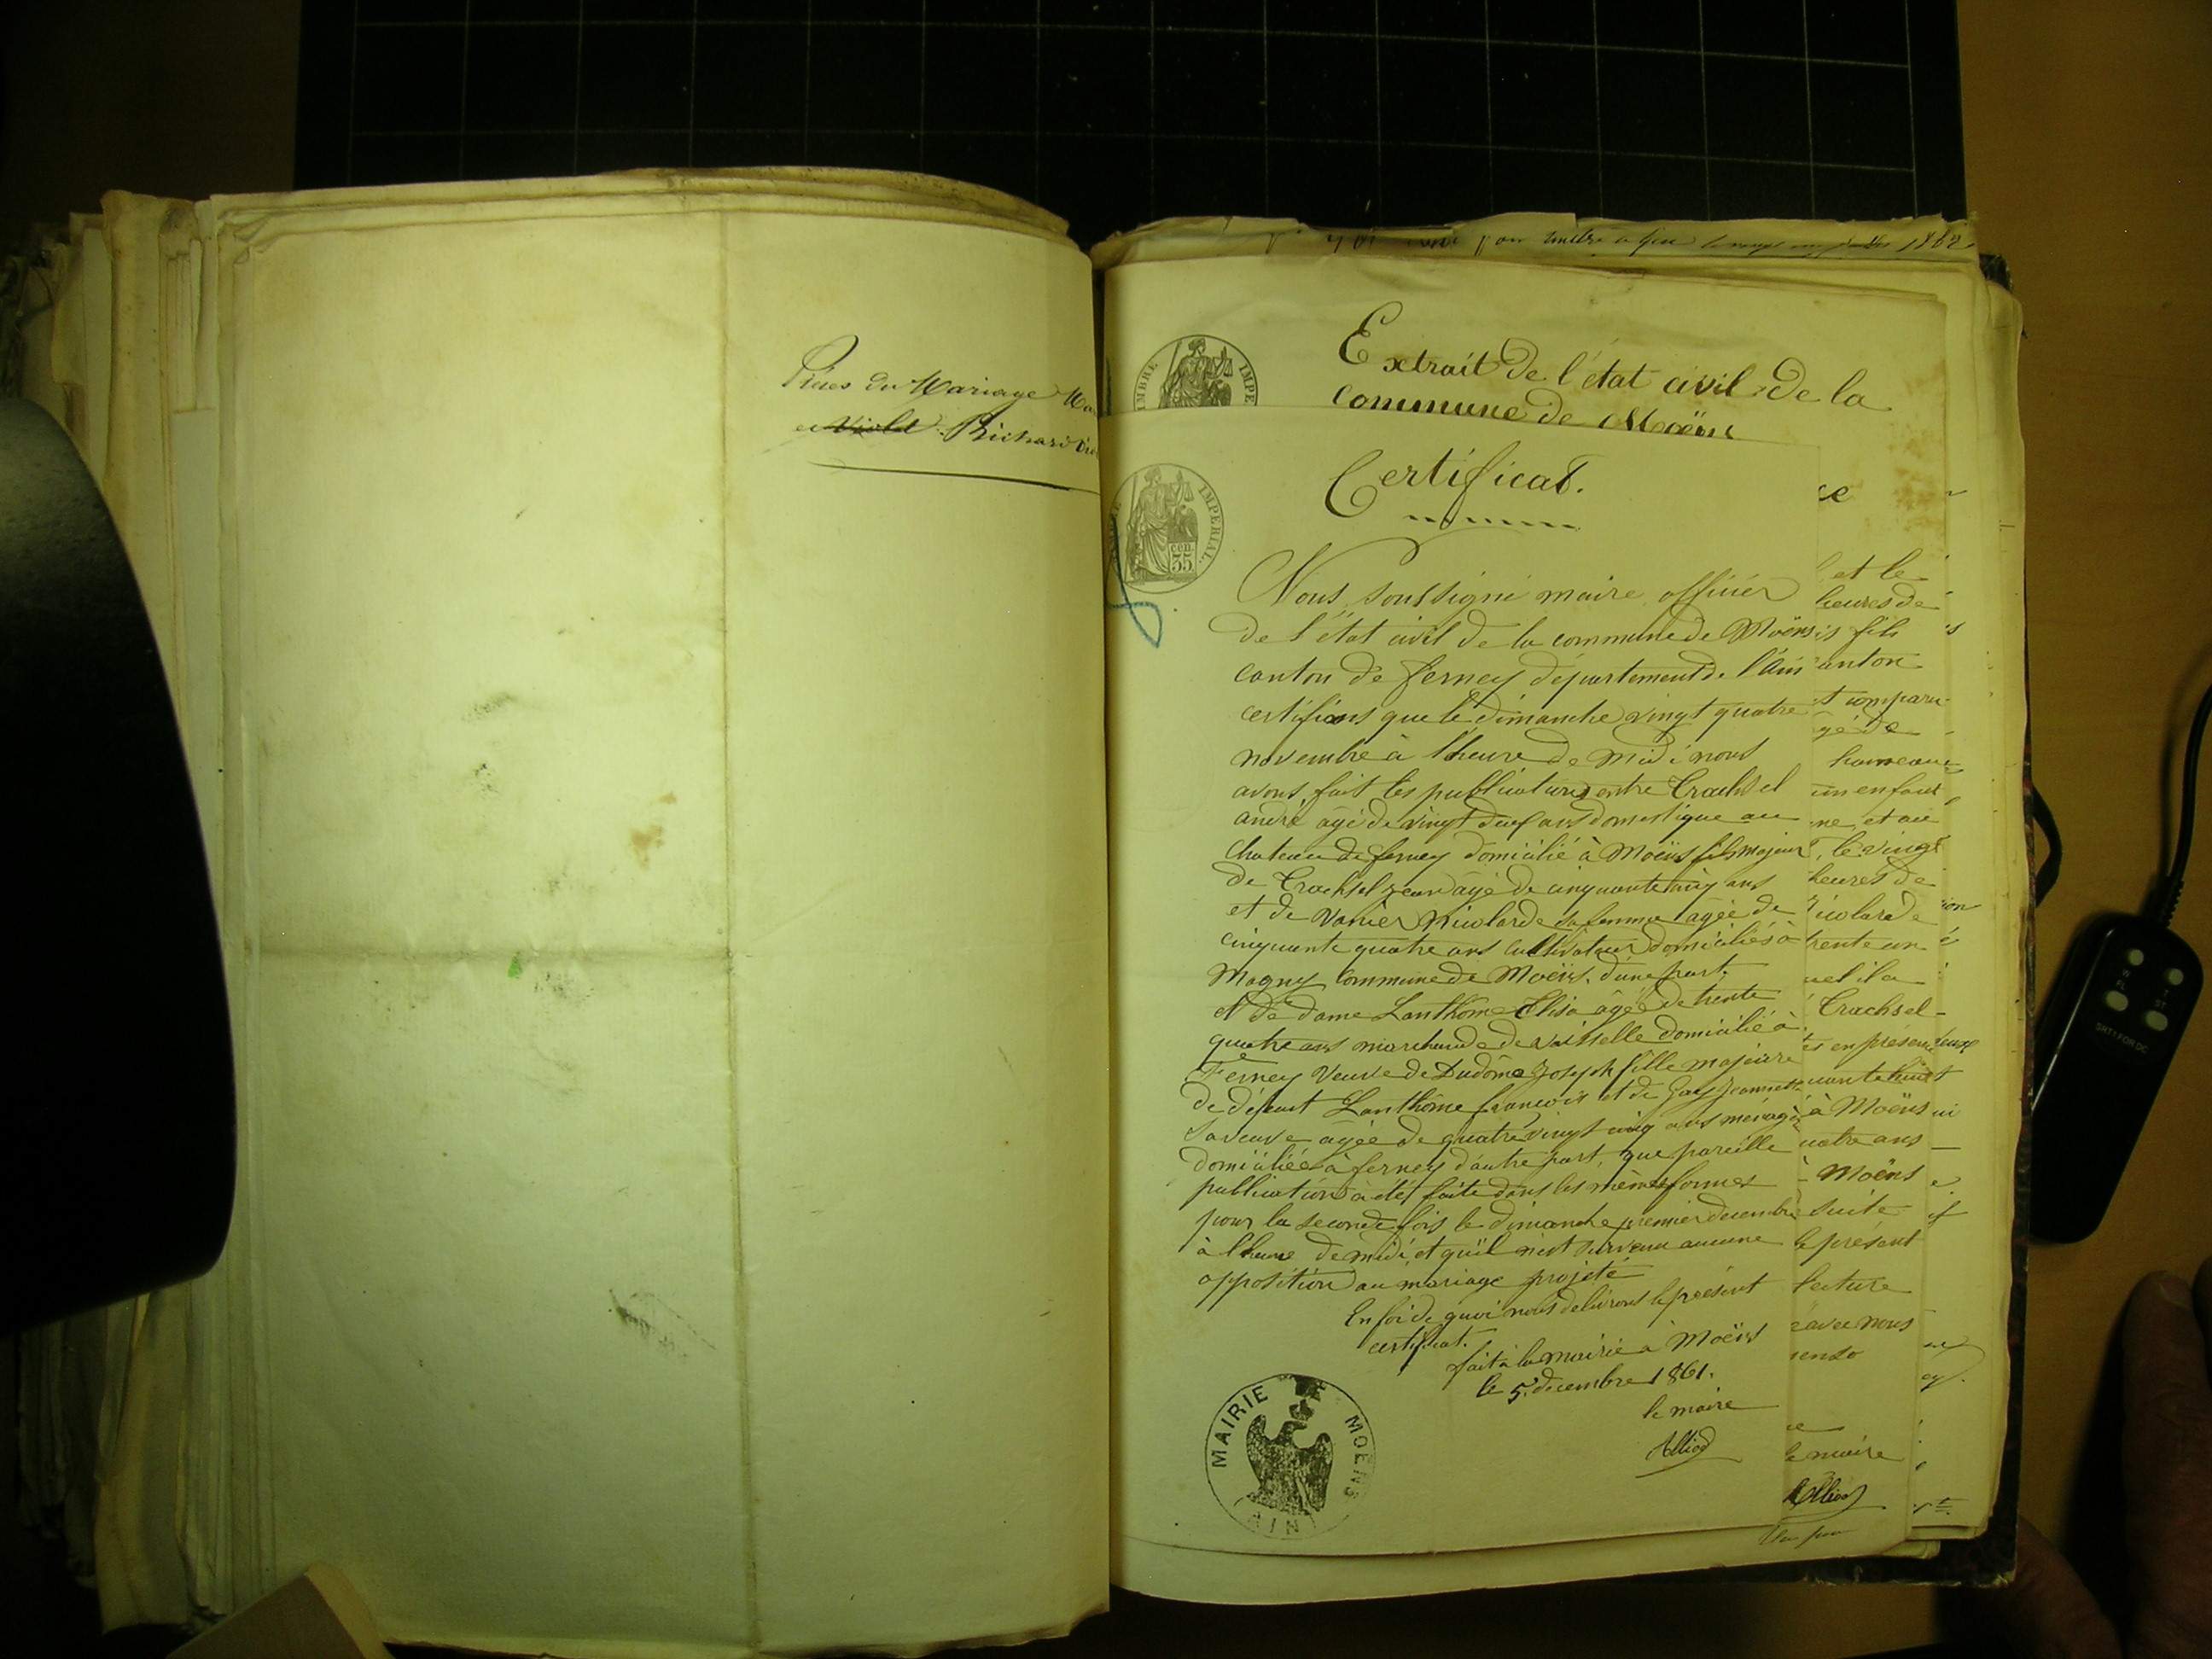 Pièces du Mariage
et Violet Richard
pour mettre à 1862
Extrait de l'état civil de la
commune de Moëns
TIMBRE IMPERIAL
cen. 35
Certificat.
Nous soussigné maire officier
de l'état civil de la commune de Moëns
canton de ferney département de l'Ain
certifions que le dimanche vingt quatre
novembre à l'heure de midi nous
avons fait les publications entre Trachsel
andré âgé de vingt deux ans domestique au
chateau de ferney domicilié à Moëns fils majeur
de Trachsel Jean âgé de cinquante cinq ans
et de Nicolarde sa femme âgée de
cinquante quatre ans cultivateur domiciliés à
Magny commune de Moëns. d'une part.
et de dame Lanthome Elisa âgée de trente
quatre ans marchande de vaisselle domicilié à
Ferney veuve de Dudôme Joseph fille majeure
de défunt Lanthôme françois et de Gay Jeannette
sa veuve âgée de quatre vingt cinq ans ménagère
domiciliée à ferney d'autre part, que pareille
publication à été faite dans les mêmes formes
pour la seconde fois le dimanche premier decembre
à l'heure de midi et qu'il n'est survenu aucune
opposition au mariage projeté
En foi de quoi nous délivrons le présent
certificat.
fait à la mairie à Moëns
le 5 decembre 1861.
le maire
Alliod
MAIRIE DE MOENS
(AIN)
ce
et le
heures de
fils
canton
comparu
âgé de
hameau
un enfant
et au
le vingt
heures de
Nicolarde
trente un
quel il a
Trachsel
en présence
à Moëns
quatre ans
Moëns
suite
le présent
lecture
avec nous
le maire
Alliod
SHTIFORDC